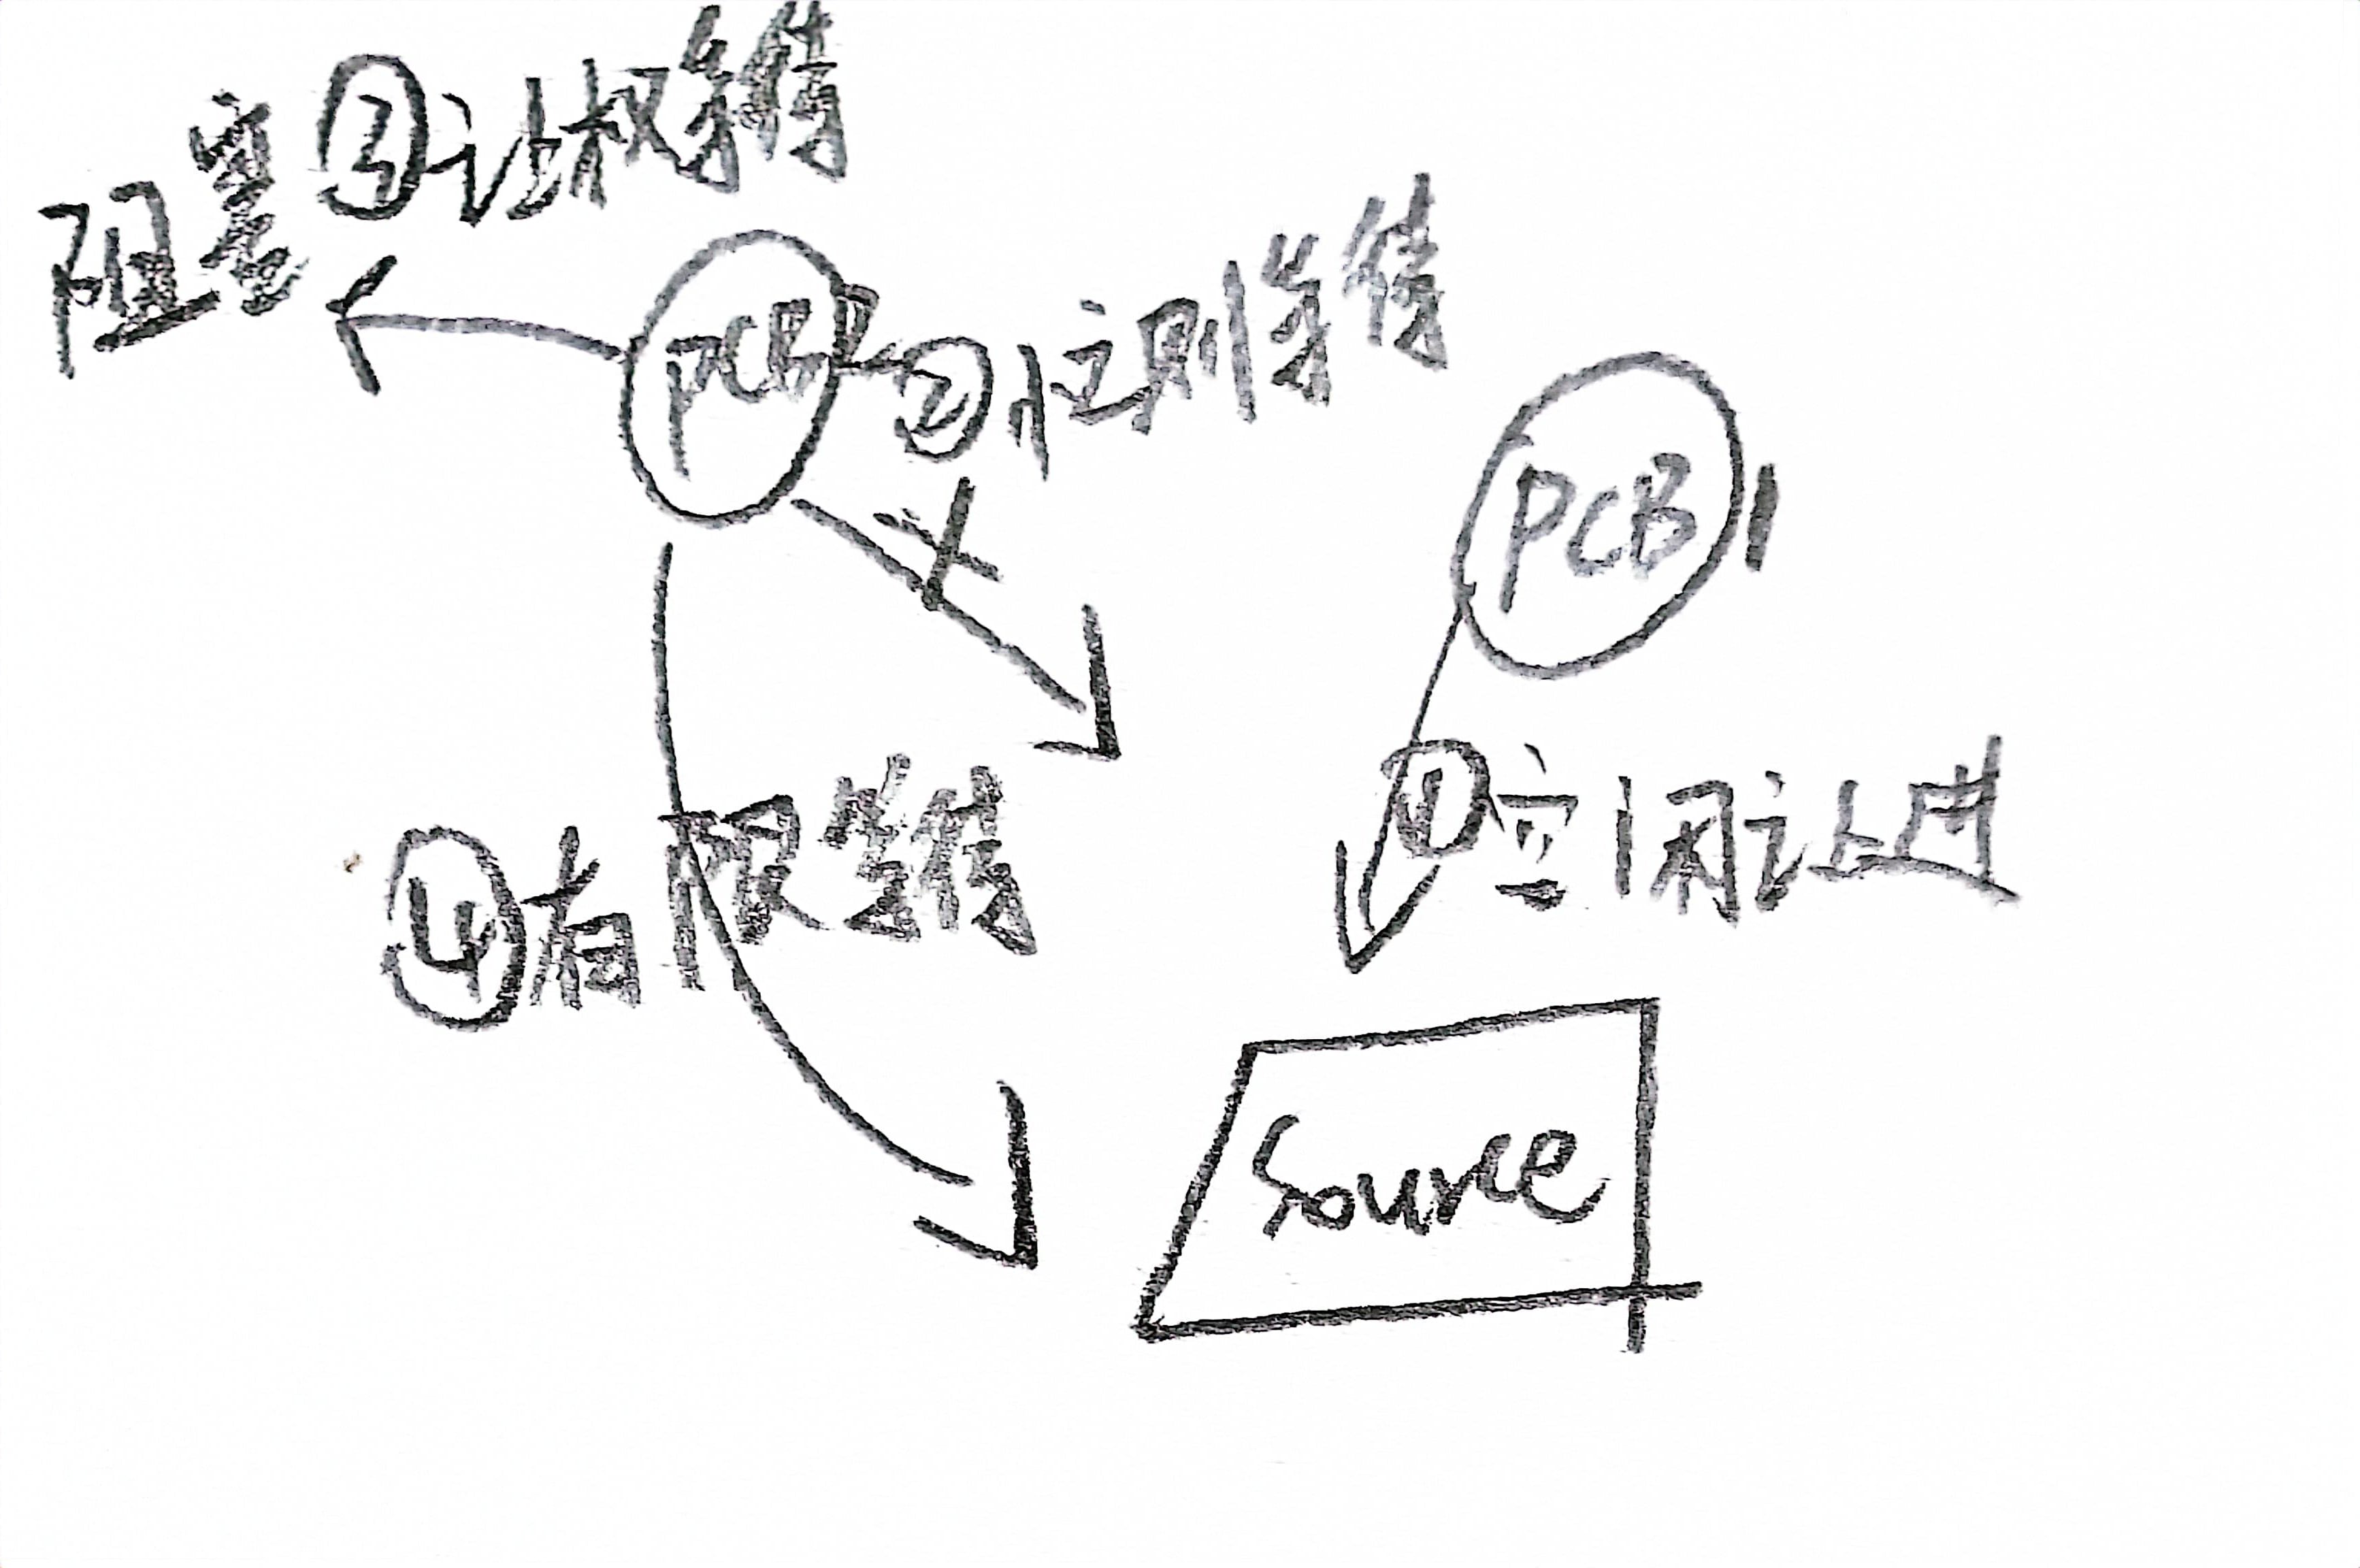 ③让权等待
阻塞
PCB2
②忙则等待
PCB1
①空闲让进
④有限等待
Source